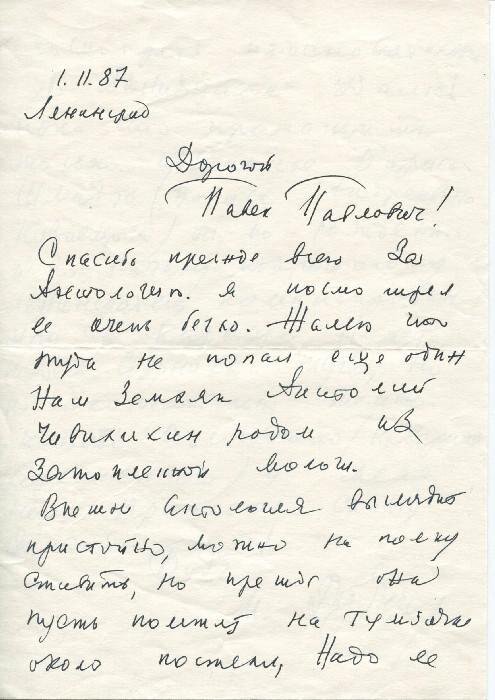 1.11.87
Ленинград
Дорогой
Павел Павлович!
Спасибо прежде всего за
Антологию. Я посмотрел
ее очень бегло. Жалею что
туда не попал еще один
Наш Земляк Анатолий
Чивилихин родом из
Затопленной Мологи.
Внешне Антология выглядит
пристойно, можно на полку
ставить, но прежде она
пусть полежит на тумбочке
около постели, Надо ее